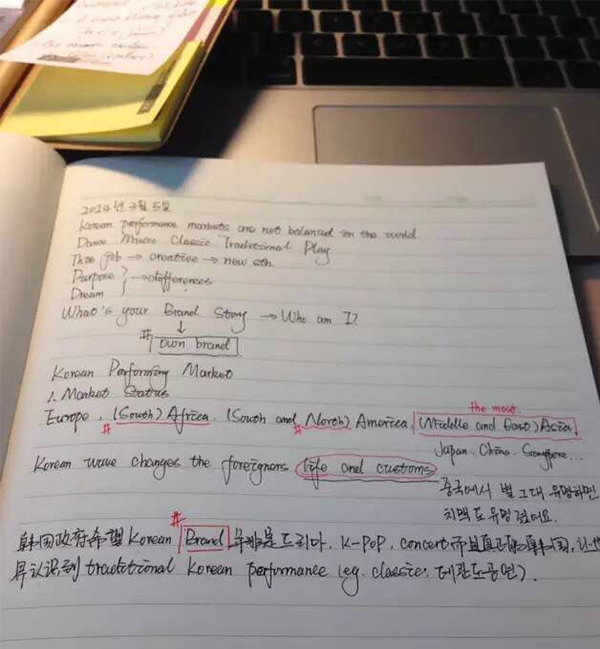 2014年3月5日
Korean performance markets are not balanced in the world
Dance Music Classic Traditional Play
This job → creative → new sth.
Purpose
Dream
→ differences
What's your Brand Story → Who am I?
↓
# own brand
Korean Performing Market
1. Market Status
the most
Europe . (South) Africa . (South and North) America . (Middle and East) Asia
# #
Japan . China . Singapore ...
Korean wave changes the foreigners life and customs
중국에서 별 그대 유명하면
치맥도 유명 졌어요.
#
韩国政府希望 Korean Brand 是드라마. K-POP. concert 而且 韩国, 让世
界认识到 traditional Korean performance (eg. classic. 태권도공연).